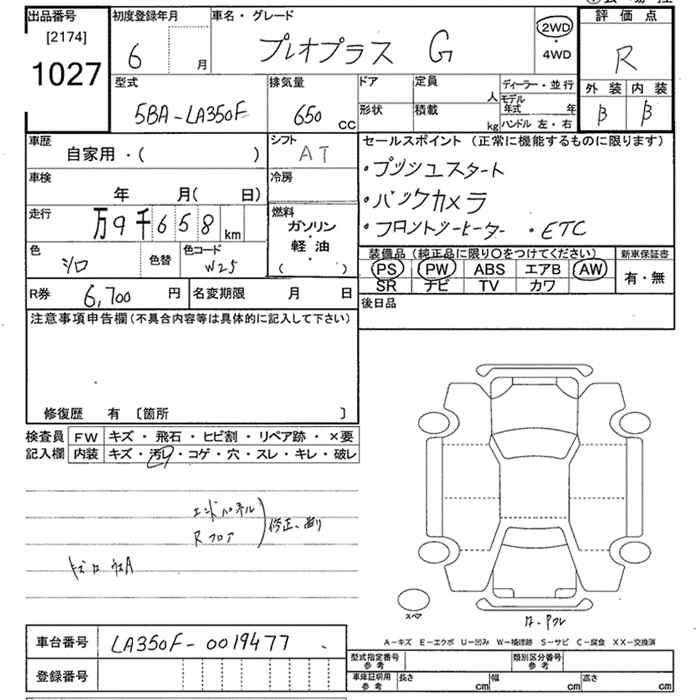 出品番号
[2174]
1027
初度登録年月
6 月
車名・グレード
プレオプラス G
2WD
・
4WD
評価点
R
外装 内装
β β
型式
5BA-LA350F
排気量
650 cc
ドア
定員
人
形状
積載
kg
ディーラー・並行
モデル年式 年
ハンドル 左・右
車歴
自家用・( )
シフト
AT
車検
年 月( 日)
冷房
走行
万9千658 km
燃料
ガソリン
・
軽油
( )
色
シロ
色替
色コード
W25
セールスポイント (正常に機能するものに限ります)
・プッシュスタート
・バックカメラ
・フロントシーヒーター ・ETC
装備品 (純正品に限り〇をつけてください)
PS PW ABS エアB AW
SR ナビ TV カワ
新車保証書
有・無
R券 6,700 円
名変期限 月 日
後日品
注意事項申告欄(不具合内容等は具体的に記入して下さい)
修復歴 有 〔箇所 〕
検査員
記入欄
FW キズ・飛石・ヒビ割・リペア跡・×要
内装 キズ・汚レ・コゲ・穴・スレ・キレ・破レ
エンドパネル
Rフロア
修正、曲り
スペア
A-キズ E-エクボ U-凹み W-補修跡 S-サビ C-腐食 XX-交換済
車台番号 LA350F-0019477
登録番号
型式指定番号
参考
類別区分番号
参考
車庫証明用
参考
長さ cm 幅 cm 高さ cm